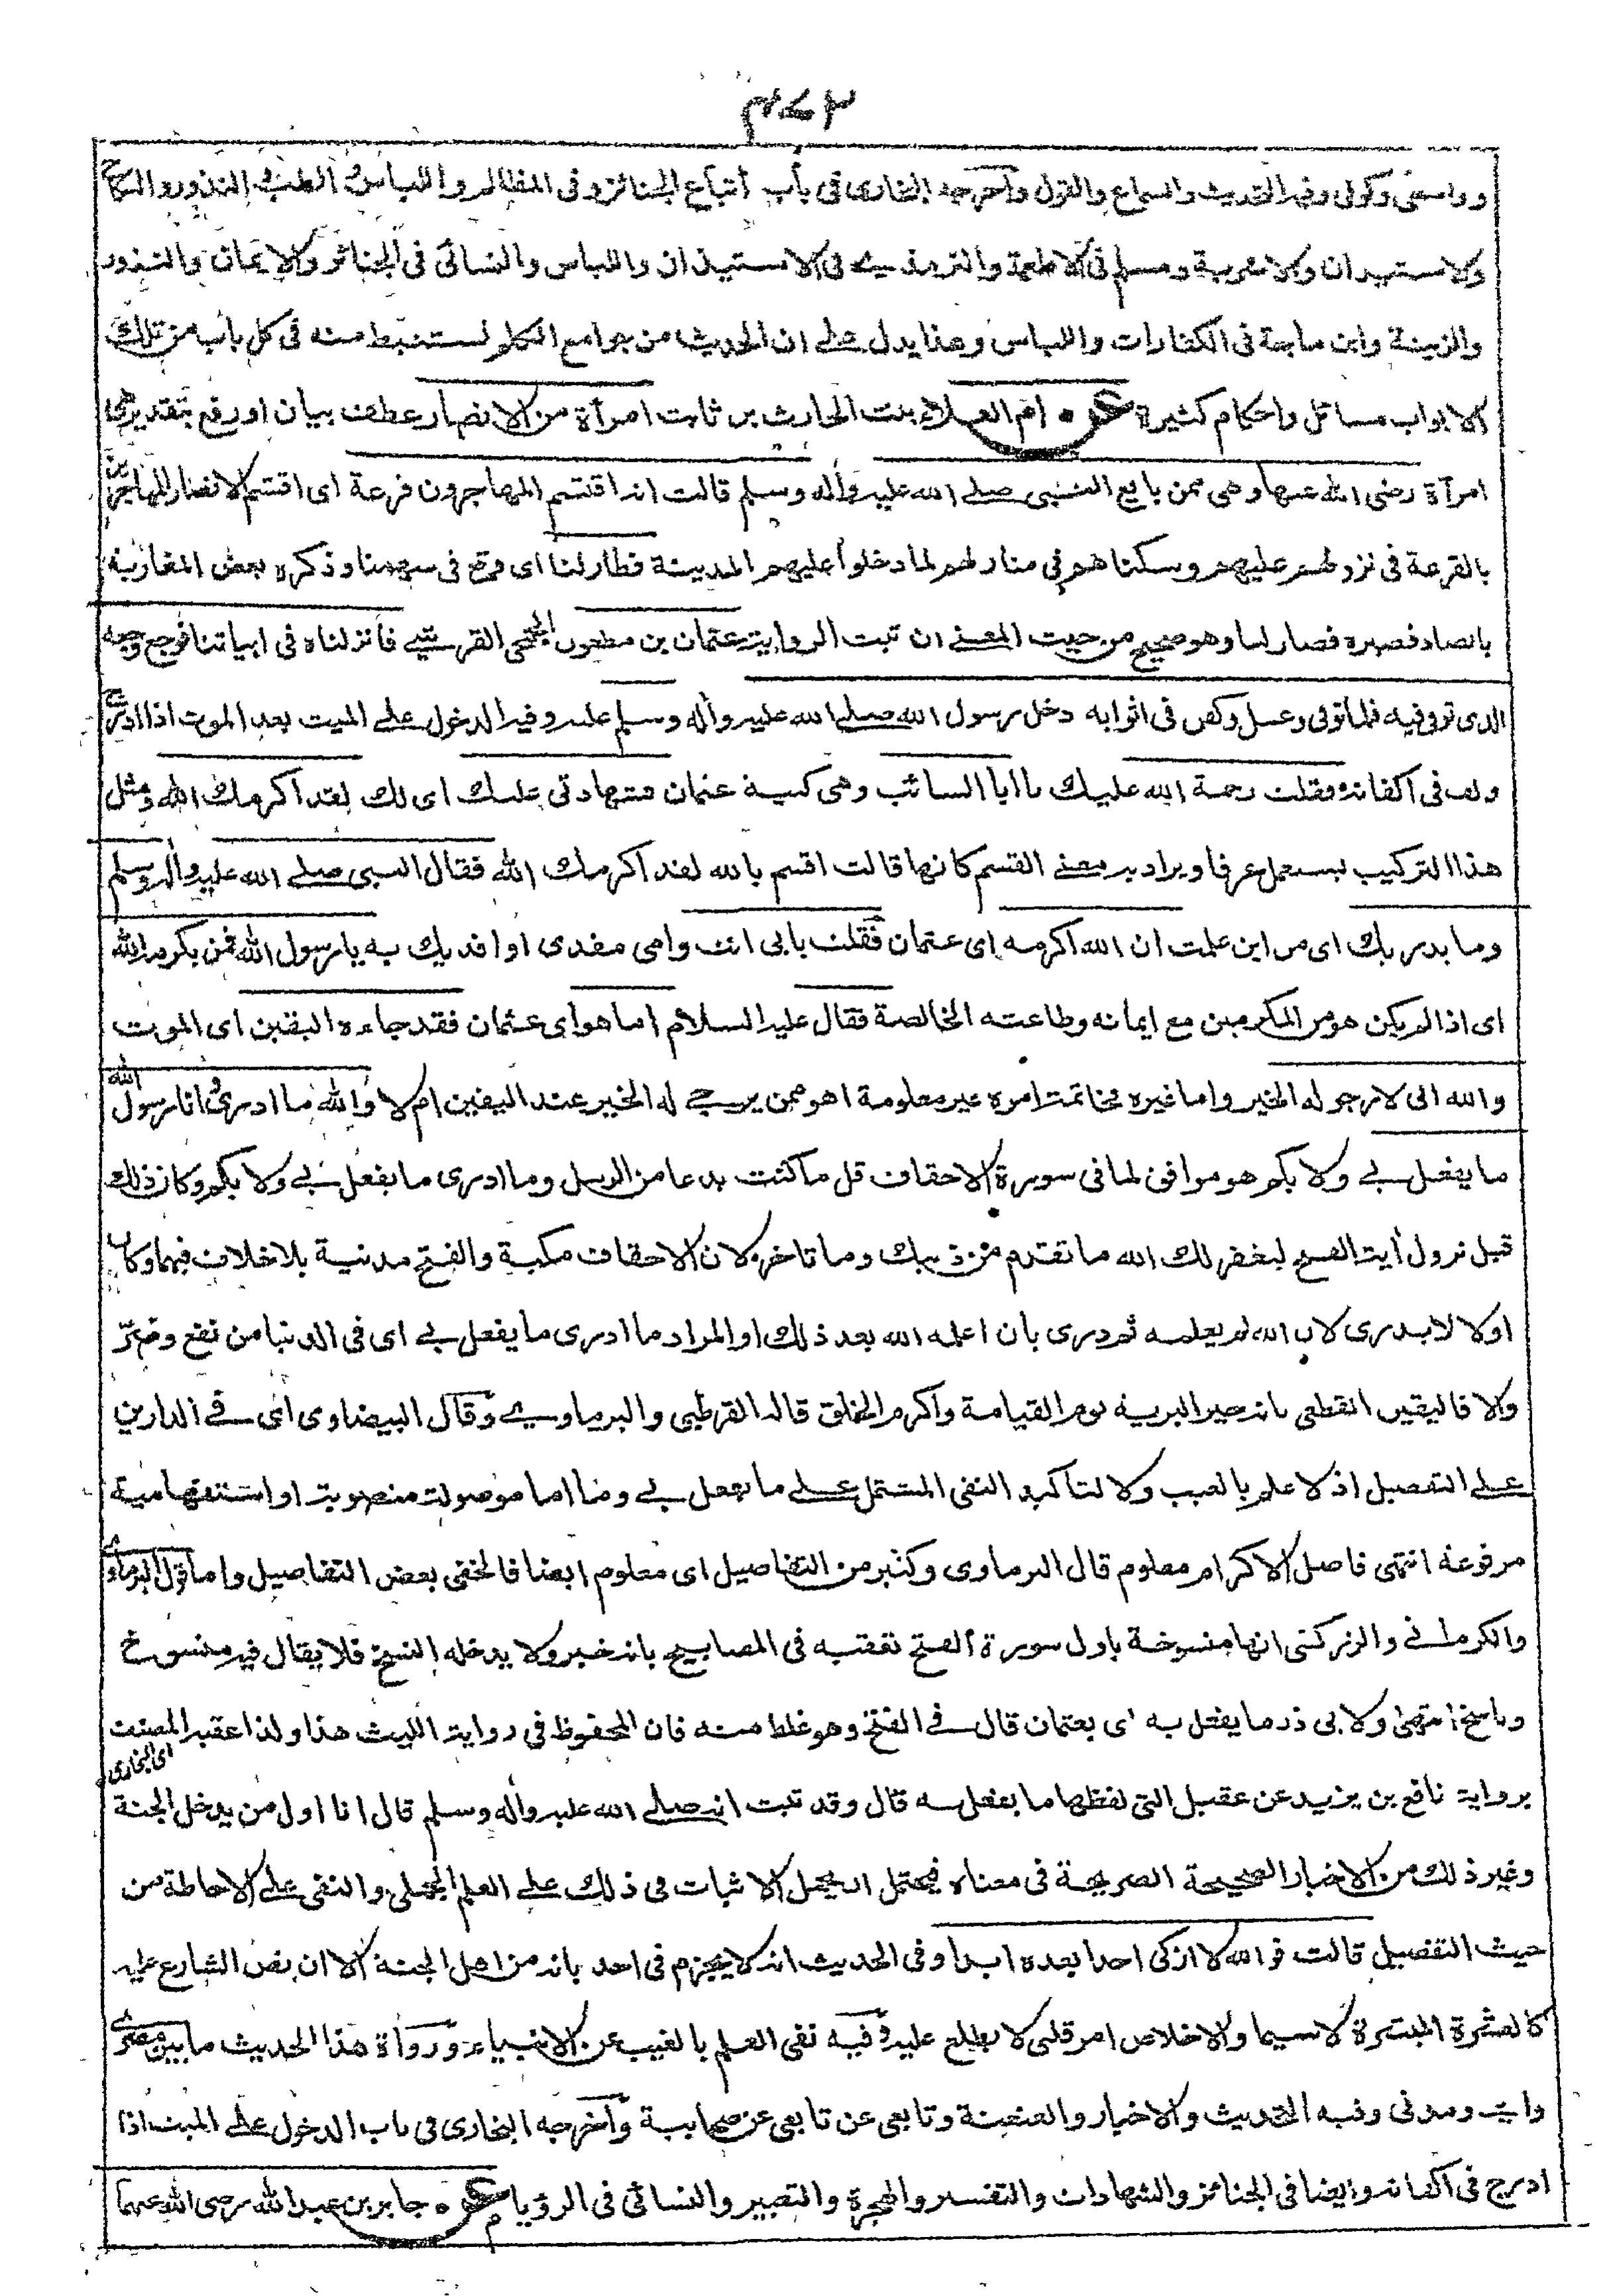 ٤٧٣
وواسطي وكوفي وفيه التحديث والسماع والقول وأخرجه البخاري في باب أتباع الجنائز وفي المظالم واللباس والطب والنذور والنكاح
والاستيذان والاشربة ومسلم في الاطعمة والترمذي في الاستيذان واللباس والنسائي في الجنائز والايمان والنذور
والزينة وابن ماجة في الكفارات واللباس وهذا يدل على ان الحديث من جوامع الكلم لستنبط منه في كل باب من تلك
الابواب مسائل واحكام كثيرة عن ام العلاء بنت الحارث بن ثابت امرأة من الانصار عطف بيان او رفع بتقدير هي
امرأة رضي الله عنها وهي ممن بايع النبي صلى الله عليه وأله وسلم قالت انه اقتسم المهاجرون قرعة اى اقتسم الانصار المهاجرين
بالقرعة في نزولهم عليهم وسكناهم في منازلهم لما دخلوا عليهم المدينة فطار لنا اى وقع في سهمنا وذكره بعض المغاربة
بالصاد فصيره فصار لنا وهو صحيح من حيث المعنى ان ثبت الرواية عثمان بن مظعون الجمحي القرشي فانزلناه في ابياتنا فوجع وجعه
الذي توفي فيه فلما توفي وغسل وكفن في اثوابه دخل رسول الله صلى الله عليه وأله وسلم عليه وفيه الدخول على الميت بعد الموت اذا ادرج
ولف في اكفانه فقلت رحمة الله عليك يا ابا السائب وهي كنية عثمان فشهادتي عليك اى لك لقد اكرمك الله ومثل
هذا التركيب يستعمل عرفا ويراد به معنى القسم كانها قالت اقسم بالله لقد اكرمك الله فقال النبي صلى الله عليه وأله وسلم
وما يدريك اى من اين علمت ان الله اكرمه اى عثمان فقلت بابي انت وامي مفدى او افديك به يا رسول الله فمن يكرمه الله
اى اذا لم يكن هو من المكرمين مع ايمانه وطاعته الخالصة فقال عليه السلام اما هو أى عثمان فقد جاءه اليقين اى الموت
والله انى لارجو له الخير واما غيره فخاتمة امره غير معلومة اهو ممن يرجى له الخير عند اليقين ام لا والله ما ادري وانا رسول الله
ما يفعل بي ولا بكم هو موافق لما في سورة الاحقاف قل ما كنت بدعا من الرسل وما ادرى ما يفعل بي ولا بكم وكان ذلك
قبل نزول أية الفتح ليغفر لك الله ما تقدم من ذنبك وما تاخر لان الاحقاف مكية والفتح مدنية بلا خلاف فيهما وكان
اولا لا يدرى لان الله لم يعلمه ثم درى بان اعلمه الله بعد ذلك او المراد ما ادرى ما يفعل بي اى في الدنيا من نفع وضر
والا فاليقين القطعي بانه خير البرية يوم القيامة واكرم الخلق قاله القرطبي والبرماوي وقال البيضاوى اى في الدارين
على التفصيل اذ لا علم بالغيب ولا لتاكيد النفى المشتمل على ما يفعل بي وما اما موصولة منصوبة او استفهامية
مرفوعة انتهى فاصل الاكرام معلوم قال البرماوى وكثير من التفاصيل اى معلوم ايضا فالخفى بعض التفاصيل واما قول البرماوى
والكرماني والزركشى انها منسوخة باول سورة الفتح تعقبه في المصابيح بانه خبر ولا يدخله النسخ فلا يقال فيه منسوخ
وناسخ انتهى ولابي ذر ما يفعل به اى بعثمان قال في الفتح وهو غلط منه فان المحفوظ في رواية الليث هذا ولذا عقبه المصنف
اى البخارى
برواية نافع بن يزيد عن عقيل التي لفظها ما يفعل به قال وقد ثبت انه صلى الله عليه وأله وسلم قال انا اول من يدخل الجنة
وغير ذلك من الاخبار الصحيحة الصريحة في معناه فيحتمل ان يحمل الاثبات في ذلك على العلم المجملي والنفى على الاحاطة من
حيث التفصيل قالت فو الله لا ازكى احدا بعده ابدا وفي الحديث انه لا يجزم في احد بانه من اهل الجنة الا ان نص الشارع عليه
كالعشرة المبشرة لا سيما والاخلاص امر قلبى لا يطلع عليه وفيه نفى العلم بالغيب عن الانبياء ورواة هذا الحديث ما بين مصرى
وايلي ومدني وفيه التحديث والاخبار والعنعنة وتابعى عن تابعى عن صحابية وأخرجه البخارى في باب الدخول على الميت اذا
ادرج في اكفانه وايضا في الجنائز والشهادات والتفسير والهجرة والتعبير والنسائي في الرؤيا عن جابر بن عبد الله رضى الله عنهما